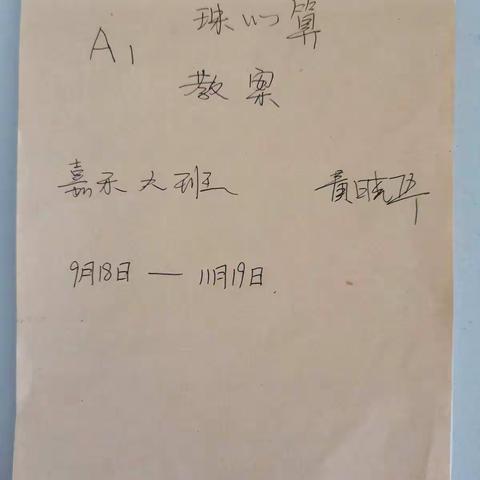 A1 珠心算
教案
嘉禾大班 黄晓华
9月18日 — 11月19日